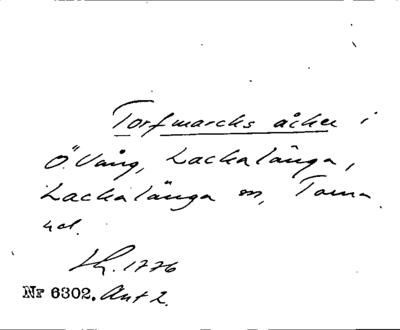 Torfmarcks åker i
Ö. Vång, Lackalänga,
Lackalänga sn, Torna
hd.
Lh. 1776
Nr 6302. Ant 2.